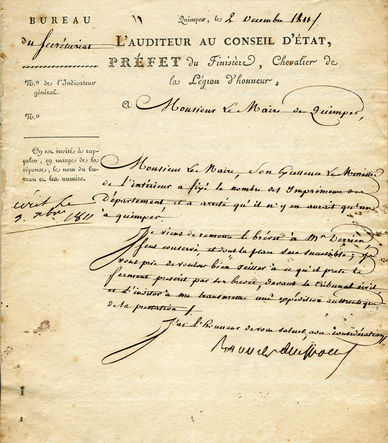 BUREAU
du Secrétariat
N.º de l'Indicateur
général.
N.º
On est invité à rap-
peler, en marge de la
réponse, le nom du bu-
reau et les numéros.
écrit le
3. xbre 1811
Quimper, le 2 Decembre 1811
L'AUDITEUR AU CONSEIL D'ÉTAT,
PRÉFET du Finistère, Chevalier de
la Légion d'honneur,
A Monsieur Le Maire de Quimper,
Monsieur Le Maire, Son Excellence Le Ministre
de l'intérieur a fixé le nombre des Imprimeurs du
Département, et a arreté qu'il n'y en aurait qu'un
à quimper.
Je viens de remettre le brévet à Mr Derrien
conservé, et dont la place Je
vous prie de vouloir bien veiller à ce qu'il prete le
serment prescrit par son brevet, devant le tribunal civil
et L'inviter à me transmettre une expédition authentique
de la prestation.
J'ai l'honneur de vous saluer, avec considération